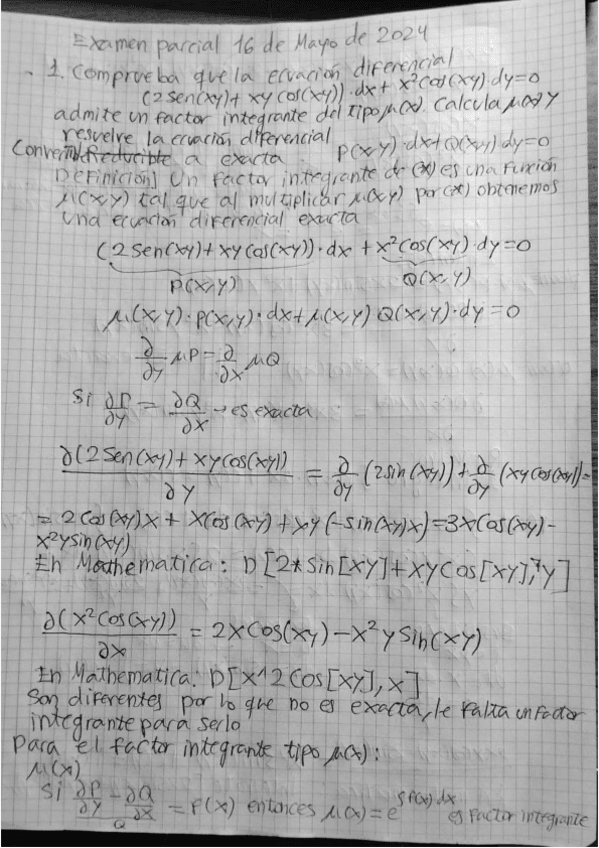 Examen parcial 16 de Mayo de 2024
1. Comprueba que la ecuación diferencial
(2sen(xy)+ xy cos(xy))·dx + x²cos(xy)·dy=0
admite un factor integrante del tipo μ(x). Calcula μ(x) y
resuelve la ecuación diferencial
a exacta P(x,y)·dx+Q(x,y)dy=0
Definición] Un factor integrante de (*) es una función
μ(x,y) tal que al multiplicar μ(x,y) por (*) obtenemos
una ecuación diferencial exacta
(2sen(xy)+ xy cos(xy))·dx + x²cos(xy)·dy=0
P(x,y) Q(x,y)
μ(x,y)·P(x,y)·dx+μ(x,y)Q(x,y)·dy=0
∂/∂y μP=∂/∂x μQ
Si ∂P/∂y = ∂Q/∂x → es exacta
∂(2sen(xy)+xycos(xy))/∂y = ∂/∂y (2sin(xy))+∂/∂y (xycos(xy))=
= 2cos(xy)x + xcos(xy)+xy(-sin(xy)x)=3xcos(xy)-
x²ysin(xy)
En Mathematica: D[2*Sin[xy]+xyCos[xy],y]
∂(x²cos(xy))/∂x = 2xcos(xy)-x²ysin(xy)
En Mathematica: D[x^2Cos[xy],x]
Son diferentes por lo que no es exacta, le falta un factor
integrante para serlo
Para el factor integrante tipo μ(x):
μ(x)
Si (∂P/∂y - ∂Q/∂x)/Q = f(x) entonces μ(x)=e^∫f(x)dx es factor integrante